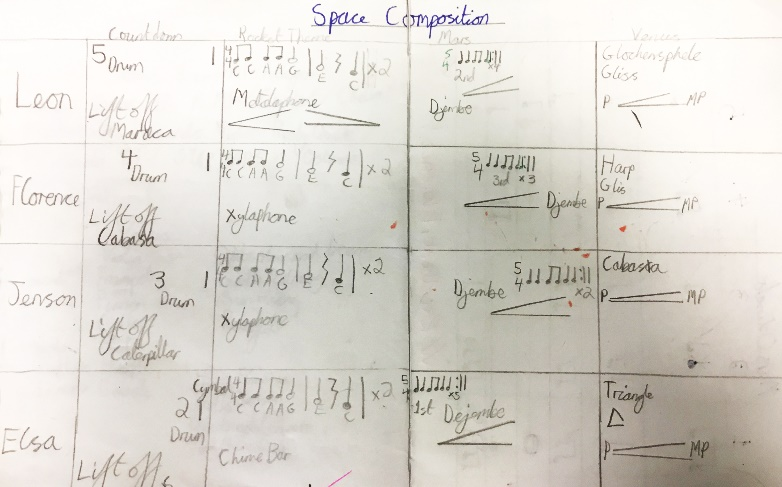 Space Composition
Countdown Rocket Theme Mars Venus
Leon
5 Drum 1
Lift off
Maraca
4 4 C C A A G E C x2
Metallophone
5 4 x4
2nd
Djembe
Gliss
P MP
Florence
4 Drum 1
Lift off
Cabasa
4 4 C C A A G E C x2
Xylophone
5 4
3rd x3
Djembe
Harp
Glis
P MP
Jenson
3 Drum 1
Lift off
Caterpillar
4 4 C C A A G E C x2
Xylophone
5 4 x2
Djembe
P MP
Elsa
Cymbal
2 1
Drum
Lift off
4 4 C C A A G E C x2
Chime Bar
5 4
1st
Dejembe
Triangle
P MP